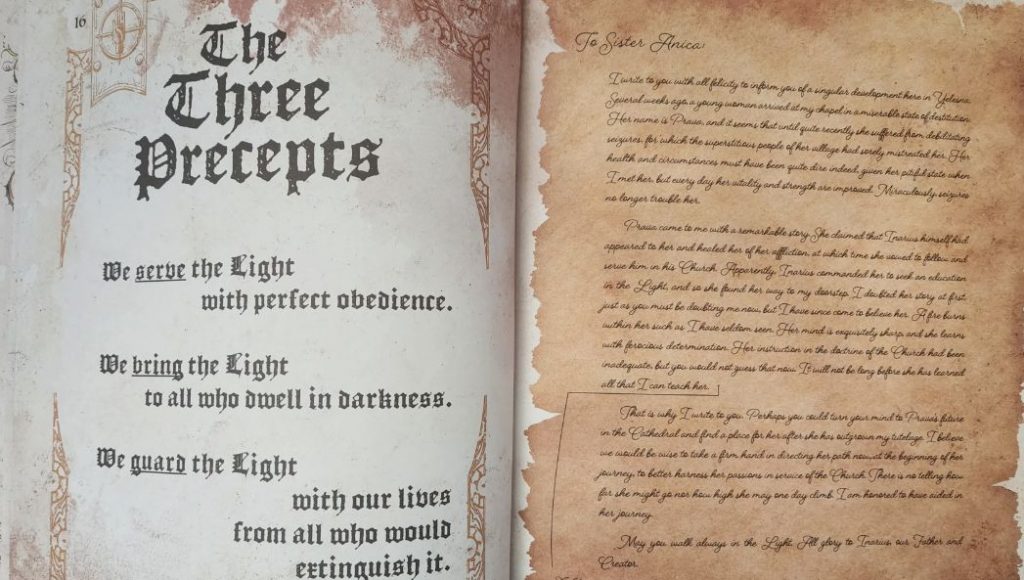 16
The
Three
Precepts
We serve the Light
with perfect obedience.
We bring the Light
to all who dwell in darkness.
We guard the Light
with our lives
from all who would
extinguish it.
To Sister Anica:
I write to you with all felicity to inform you of a singular development here in Yelesna.
Several weeks ago, a young woman arrived at my chapel in a miserable state of destitution.
Her name is Prava, and it seems that until quite recently she suffered from debilitating
seizures, for which the superstitious people of her village had sorely mistreated her. Her
health and circumstances must have been quite dire indeed, given her pitiful state when
I met her, but every day her vitality and strength are improved. Miraculously, seizures
no longer trouble her.
Prava came to me with a remarkable story. She claimed that Inarius himself had
appeared to her and healed her of her affliction, at which time she vowed to follow and
serve him in his Church. Apparently, Inarius commanded her to seek an education
in the Light, and so she found her way to my doorstep. I doubted her story at first,
just as you must be doubting me now, but I have since come to believe her. A fire burns
within her such as I have seldom seen. Her mind is exquisitely sharp, and she learns
with ferocious determination. Her instruction in the doctrine of the Church had been
inadequate, but you would not guess that now. It will not be long before she has learned
all that I can teach her.
That is why I write to you. Perhaps you could turn your mind to Prava's future
in the Cathedral and find a place for her after she has outgrown my tutelage. I believe
we would be wise to take a firm hand in directing her path now, at the beginning of her
journey, to better harness her passions in service of the Church. There is no telling how
far she might go nor how high she may one day climb. I am honored to have aided in
her journey.
May you walk always in the Light. All glory to Inarius, our Father and
Creator.